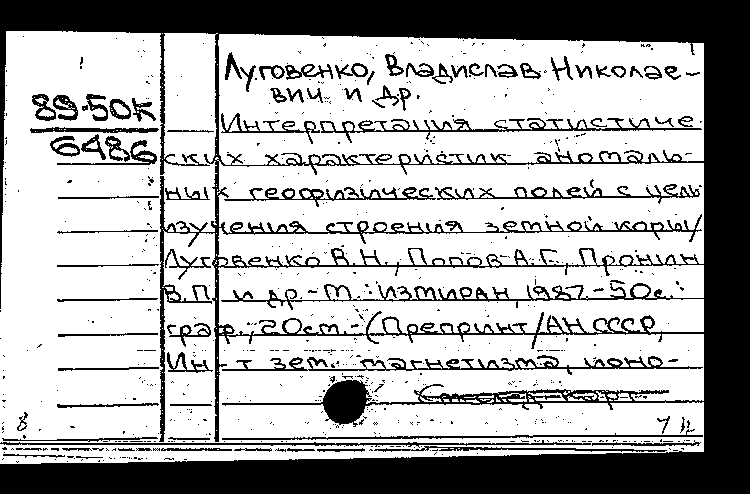 Луговенко, Владислав Николае-
вич и др.
89-50к
6486
Интерпретация статистиче
ских характеристик аномаль-
ных геофизических полей с цель
изучения строения земной коры/
Луговенко В.Н., Попов А.Г., Пронин
В.П. и др - М.: ИЗМИРАН, 1987. - 50с.:
граф.; 20см. - (Препринт/АН СССР,
Ин-т зем. магнетизма, ионо-
См.след.карт.
8